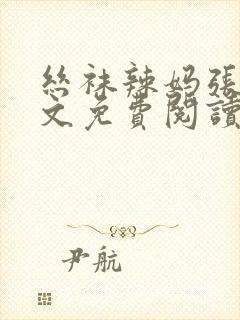 丝袜辣妈张
文免費閱讀
尹航